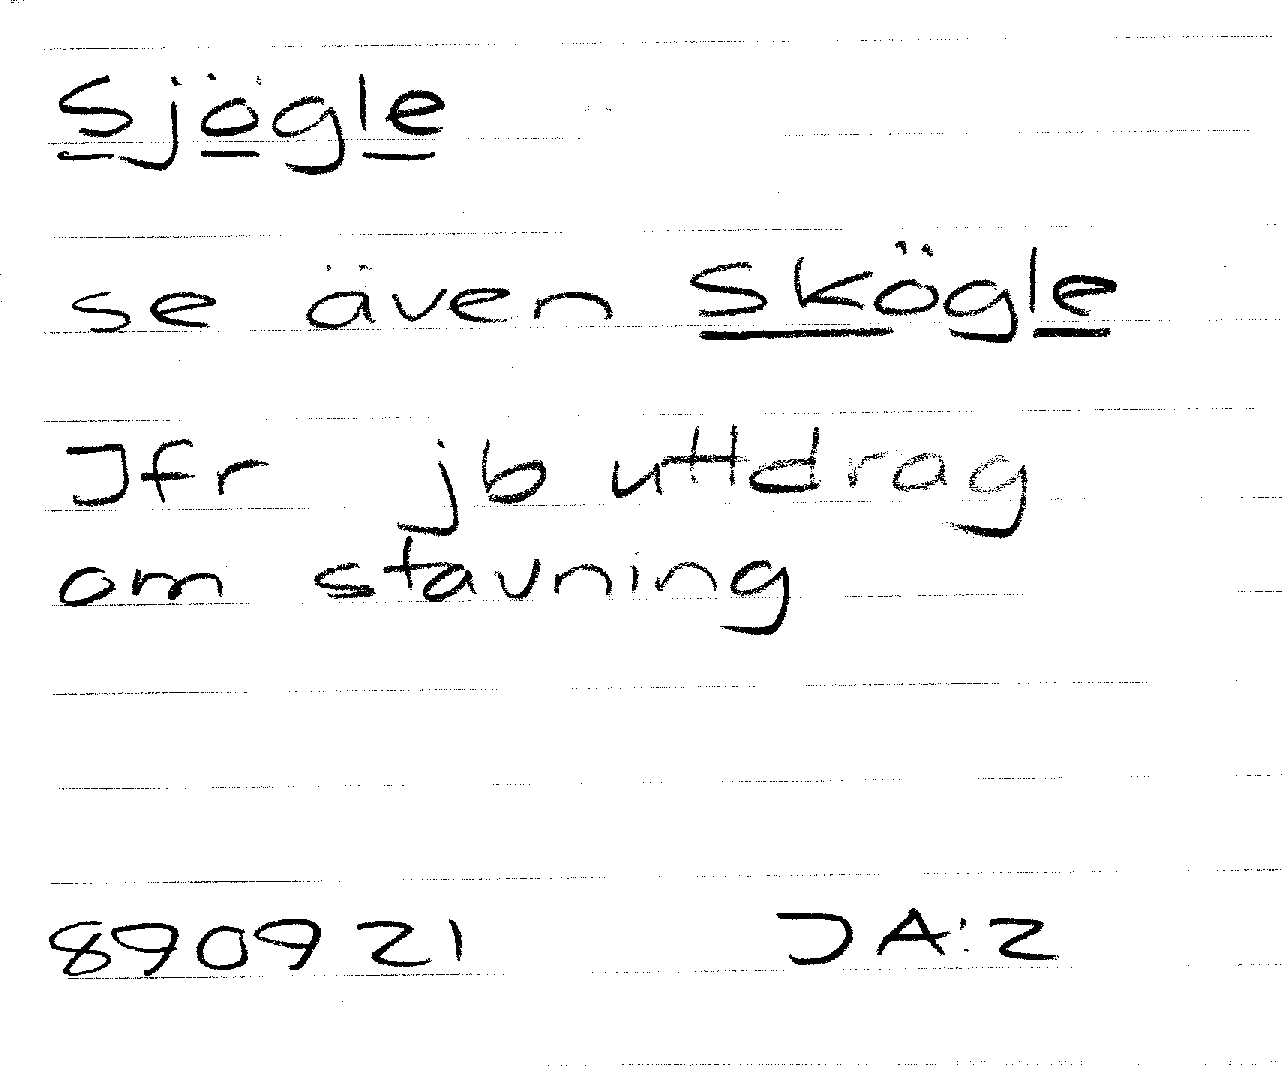 Sjögle
se även Skögle
Jfr jb uttdrag
om stavning
890921 JA:2